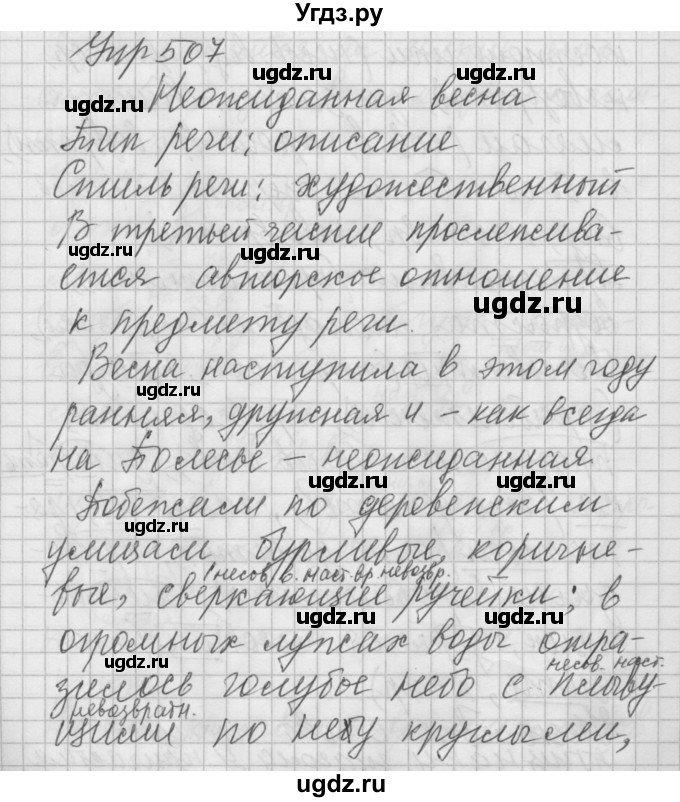 Угдз.ру
Упр 507
ugdz.ru ugdz.ru
ugdz.ru Неожиданная весна
Тип речи: описание
Стиль речи: художественный
В третьей части прослежива-
ugdz.ru ugdz.ru
ется авторское отношение
ugdz.ru
к предмету речи.
Весна наступила в этом году
ugdz.ru
ранняя, дружная и – как всегда
на Полесье – неожиданная
ugdz.ru ugdz.ru
Побежали по деревенским
улицам бурливые, коричне-
(несов. в. наст. вр. невозвр.
ugdz.ru
вые, сверкающие ручейки; в
огромных лужах воды отра-
ugdz.ru несов. наст.
зилось голубое небо с плыву-
невозвратн.
щими по небу круглыми,
ugdz.ru ugdz.ru
ugdz.ru